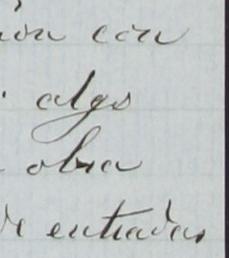 ión con
algo
obra
de entradas